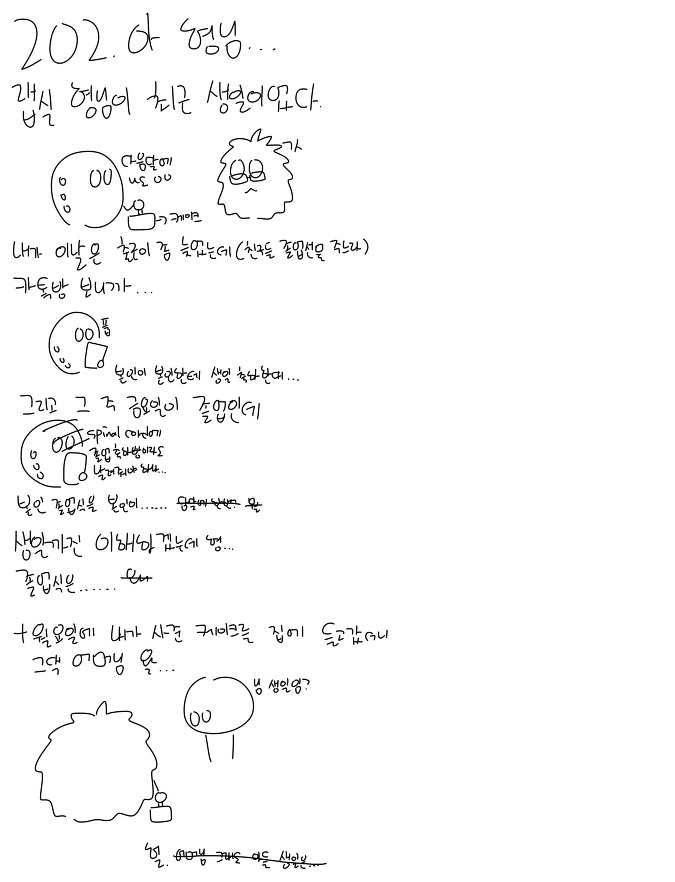 202. 아 형님...
랩실 형님이 최근 생일이었다.
다음달에
나도 ㅇㅇ
ㄱㅅ
→ 케이크
내가 이날은 출근이 좀 늦었는데 (친구들 졸업선물 주느라)
카톡방 보니까...
풉
본인이 본인한테 생일 축하한대...
그리고 그 주 금요일이 졸업인데
졸업 축하빵이라도
날려줘야 하나...
본인 졸업식을 본인이......
생일까진 이해하겠는데 형...
졸업식은......
+ 월요일에 내가 사준 케이크를 집에 들고갔더니
그댁 어머님 왈...
닝 생일임?
헐. 어머님 그래도 아들 생일은...